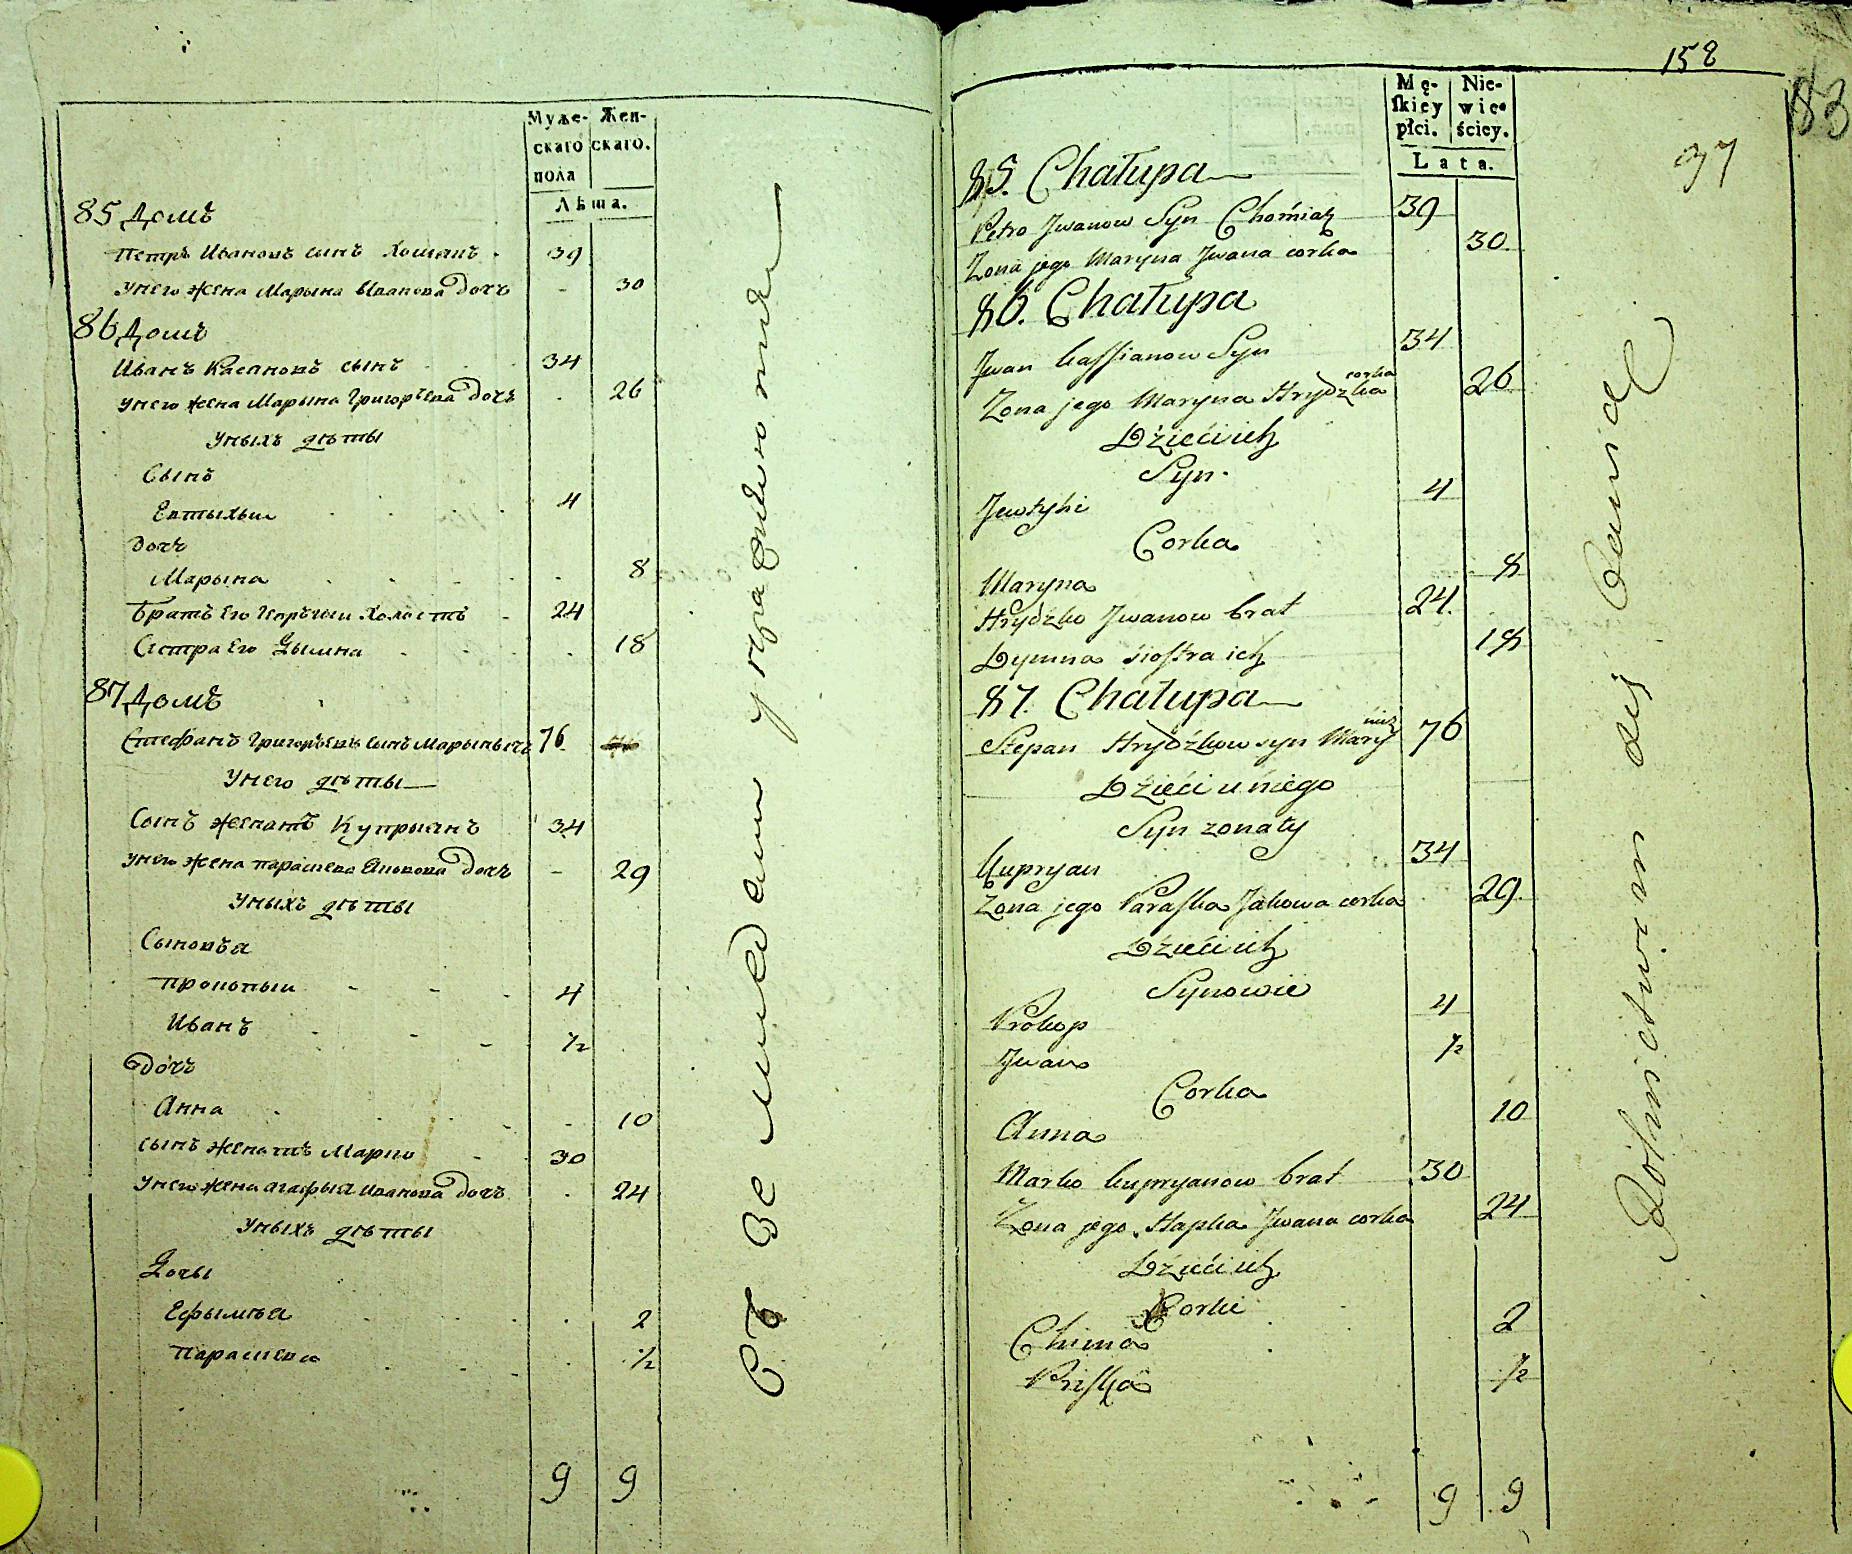 Муже-
скаго
пола
Жен-
скаго.
Лѣта.
85 Домъ
Петръ Ивановъ сынъ Хомякъ 39
Унего жена Марына Иванова дочь 30
86 Домъ
Иванъ Касяновъ сынъ 34
Унего жена Марына Григорьева дочь 26
Уныхъ дѣты
Сынъ
Евтыхый 4
дочь
Марына 8
братъ Его Холостъ 24
Систра Его Дымна 18
87 Домъ
Стефанъ Григорьевъ сынъ 76
Унего дѣты
Сынъ женатъ Купрыянъ 34
Унего жена Парасцева дочь 29
Уныхъ дѣты
Сыновья
Прокопый 4
Иванъ 1/2
дочь
Анна 10
сынъ женатъ Марко 30
Унего жена Агафыя Иванова дочь 24
Уныхъ дѣты
Дочы
Ефымья 2
Парасцева 1/2
9 9
Съ Земледелия упражняются
158
83
37
Mę-
skiey
płci.
Nie-
wie-
ściey.
Lata.
85. Chałupa
Petro Jwanow Syn Chomiak 39
Zona jego Maryna Jwana corka 30
86. Chałupa
Jwan Kassianow Syn 34
Zona jego Maryna Hrydzka corka 26
Dzieci ich
Syn
Jewtyhi 4
Corka
Maryna 8
Hrydzko Jwanow brat 24
Dymna siostra ich 18
87. Chałupa
Stepan Hrydzkow syn 76
Dzieci u niego
Syn zonaty
Kupryan 34
Zona jego Paraska Jakowa corka 29
Dzieci ich
Synowie
Prokop 4
Jwan 1/2
Corka
Anna 10
Marko Kupryanow brat 30
Zona jego Hapka Jwana corka 24
Dzieci ich
Corki
Chima 2
Priska 1/2
9 9
Rolnictwem się bawią